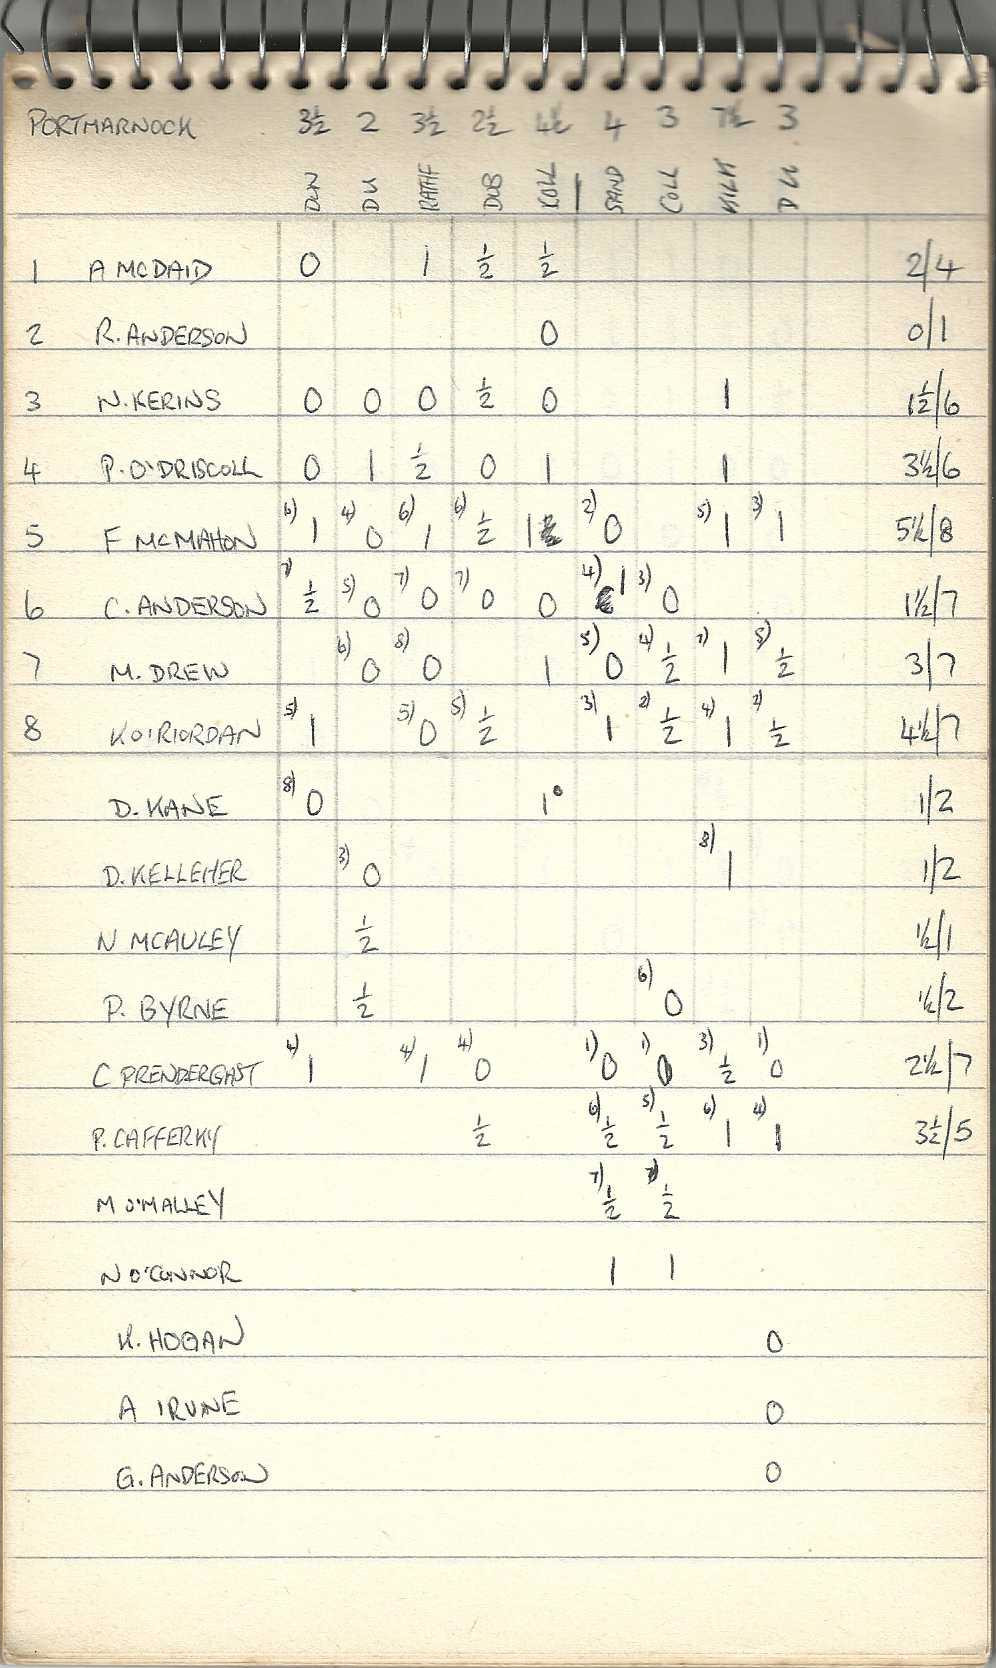 PORTMARNOCK 3½ 2 3½ 2½ 4½ 4 3 7½ 3
DUN DU RATHF DUB SAND COLL KILK
1 A MCDAID 0 1 ½ ½ 2/4
2 R. ANDERSON 0 0/1
3 N. KERINS 0 0 0 ½ 0 1 1½/6
4 P. O'DRISCOLL 0 1 ½ 0 1 1 3½/6
5 F MCMAHON 6) 1 4) 0 6) 1 6) ½ 1 2) 0 5) 1 3) 1 5½/8
6 C. ANDERSON 7) ½ 5) 0 7) 0 7) 0 0 4) 1 3) 0 1½/7
7 M. DREW 6) 0 8) 0 1 5) 0 4) ½ 7) 1 5) ½ 3/7
8 K O'RIORDAN 5) 1 5) 0 5) ½ 3) 1 2) ½ 4) 1 2) ½ 4½/7
D. KANE 8) 0 1 1/2
D. KELLEHER 3) 0 8) 1 1/2
N MCAULEY ½ ½/1
P. BYRNE ½ 6) 0 ½/2
C PRENDERGAST 4) 1 4) 1 4) 0 1) 0 1) 0 3) ½ 1) 0 2½/7
P. CAFFERKY ½ 6) ½ 5) ½ 6) 1 4) 1 3½/5
M O'MALLEY 7) ½ ½
N O'CONNOR 1 1
K. HOGAN 0
A IRVINE 0
G. ANDERSON 0